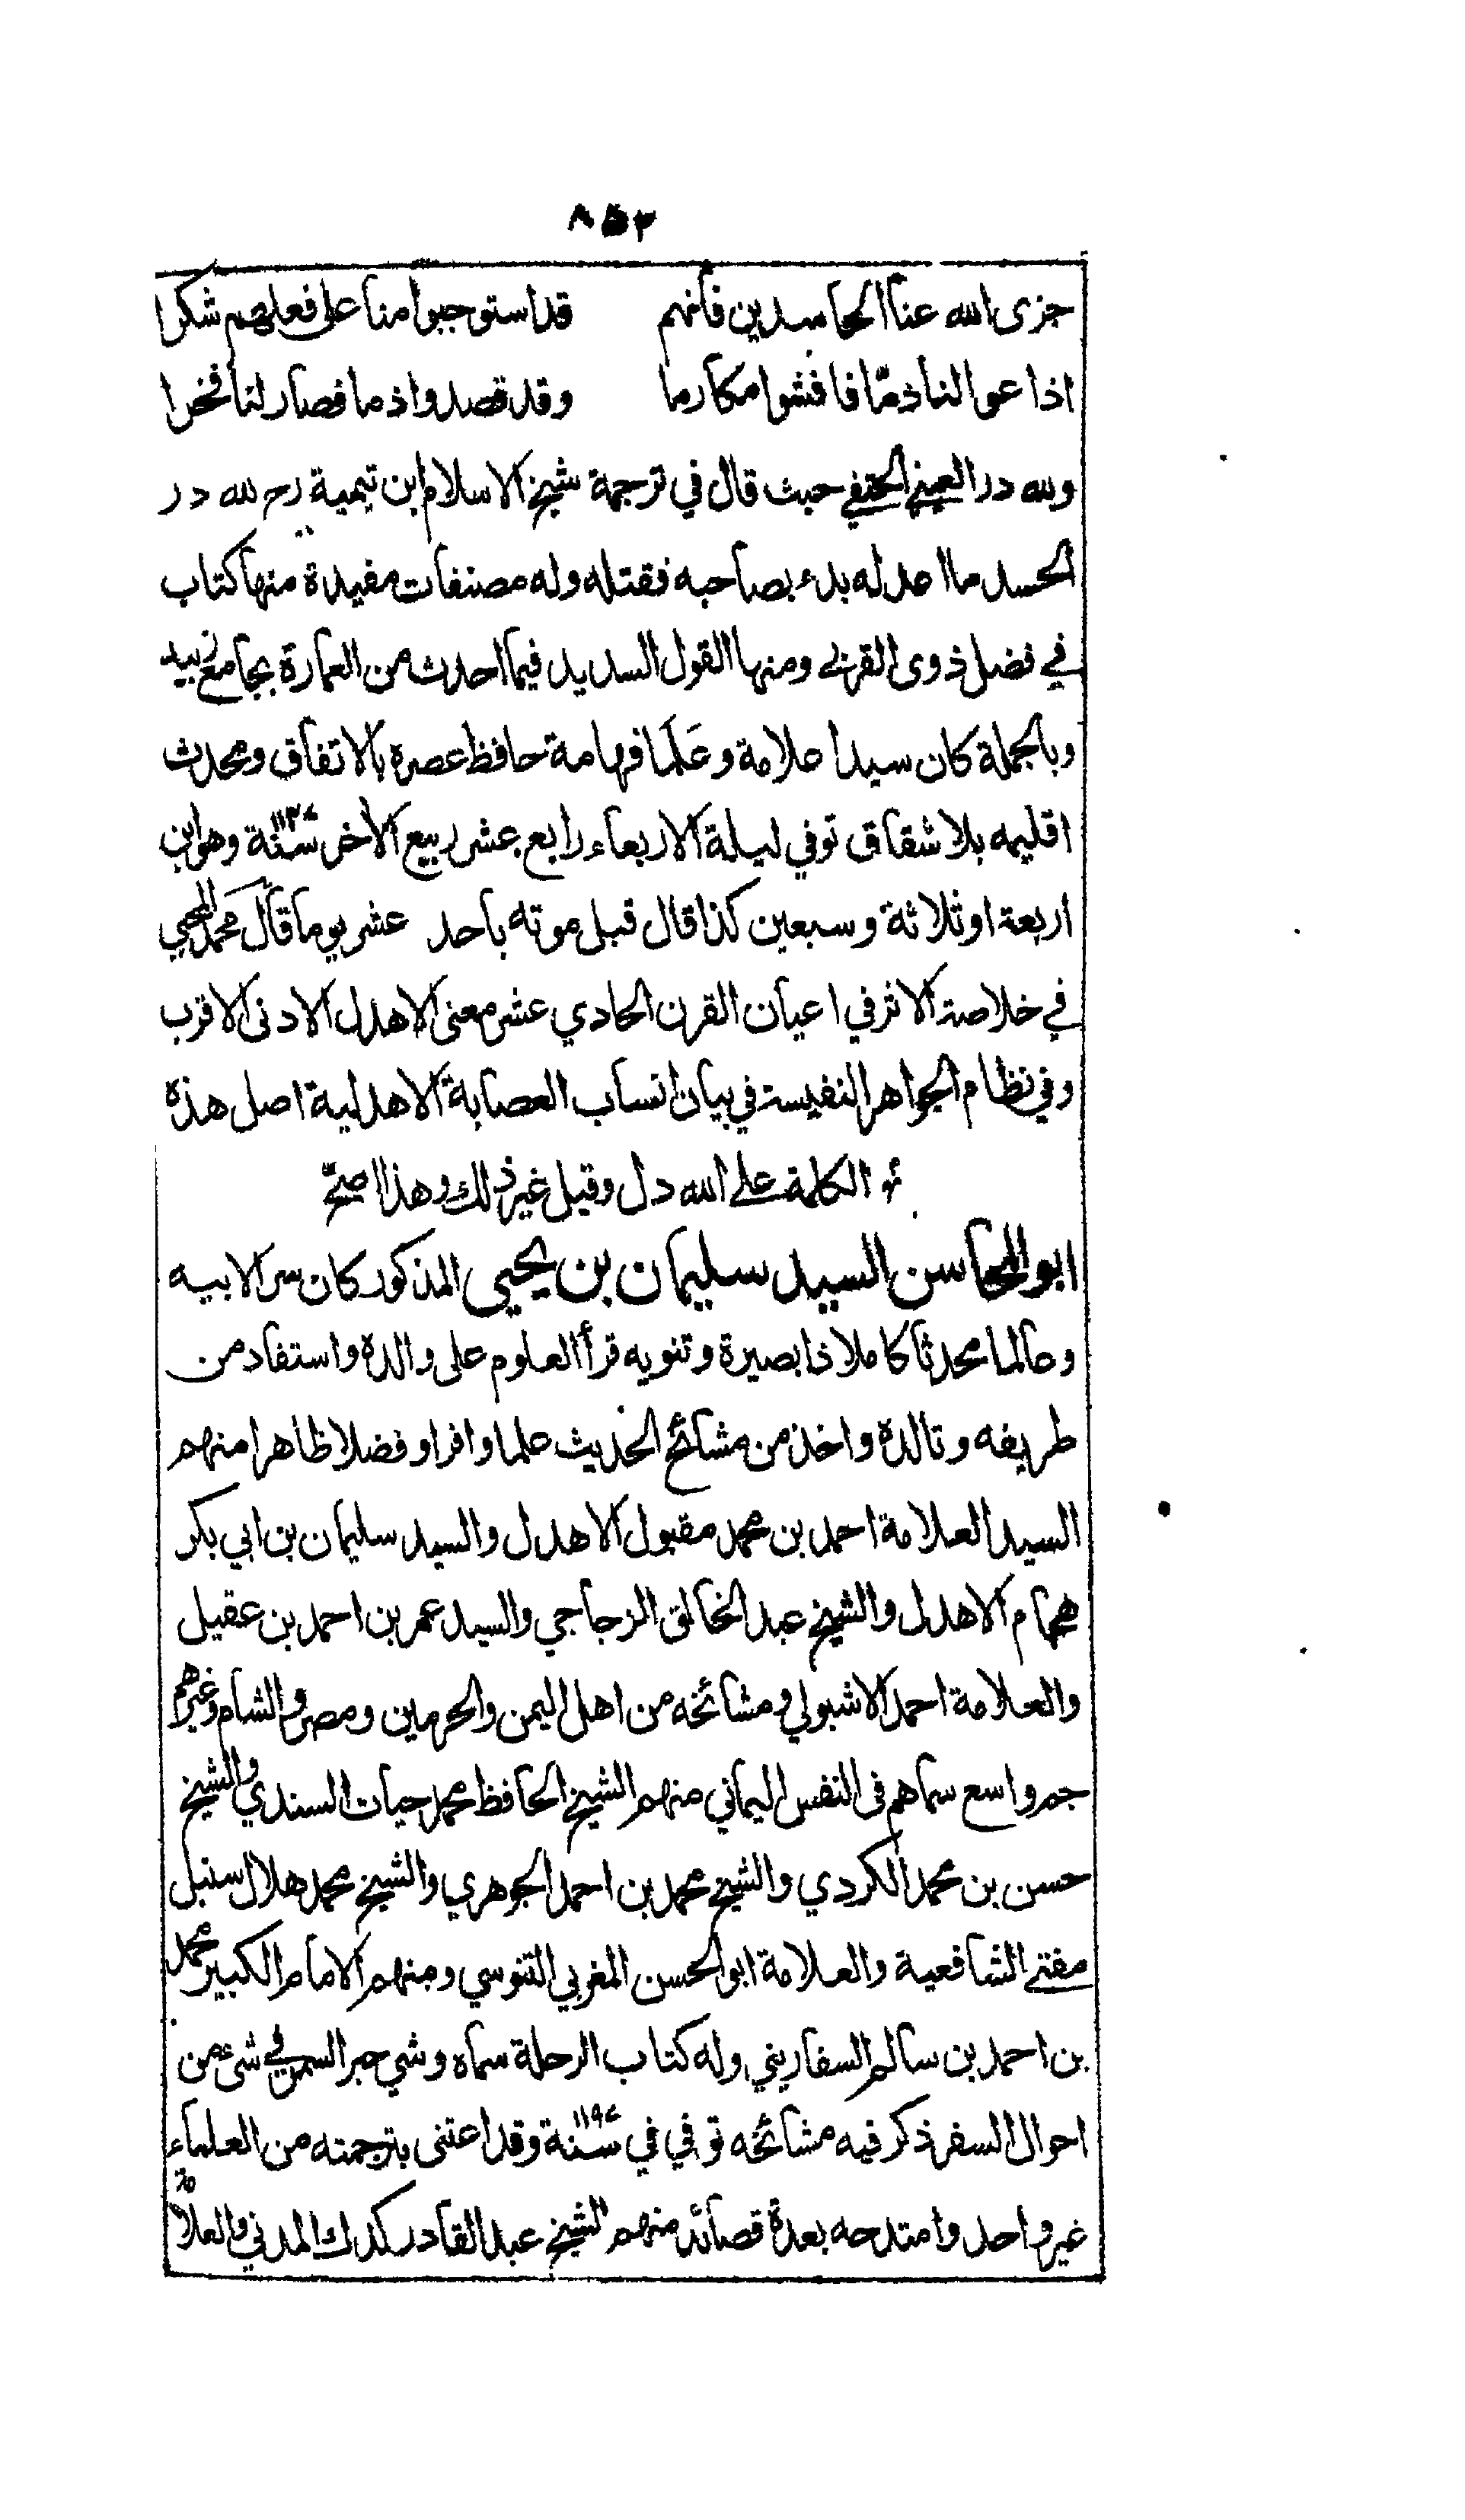 ٨٥٣
جزى الله عنا الحاسدين فانهم قد استوجبوا منا على فعلهم شكرا
اذا عوا لنا ذمّا فافشوا مكارما وقد قصدوا ذما فصار لنا فخرا
ولله در العيني الحنفي حيث قال في ترجمة شيخ الاسلام ابن تيمية رح لله در
الحسد ما اعدله بدء بصاحبه فقتله وله مصنفات مفيدة منها كتاب
في فضل ذوى القربى ومنها القول السديد فيما احدث من العمارة بجامع زبيد
وبالجملة كان سيدا علامة وعَلَما فهامة حافظ عصره بالاتفاق ومحدث
اقليمه بلا شقاق توفي ليلة الاربعاء رابع عشر ربيع الآخر سنة ١١٤٧ وهو ابن
اربعة او ثلاثة وسبعين كذا قال قبل موته باحد عشر يوما قال محمد المحبي
في خلاصة الاثر في اعيان القرن الحادي عشر معنى الاهدل الادنى الاقرب
وفي نظام الجواهر النفيسة في بيان انساب العصابة الاهدلية اصل هذه
الكلمة على الله دل وقيل غير ذلك وهذا اصحّ
ابو المحاسن السيد سليمان بن يحيى المذكور كان سرا لابيه
وعالما محدثا كاملا ذا بصيرة وتنويه قرأ العلوم على والده واستفاد من
طريفه وتالده واخذ من مشائخ الحديث علما وافرا وفضلا ظاهرا منهم
السيد العلامة احمد بن محمد مقبول الاهدل والسيد سليمان بن ابي بكر
هجام الاهدل والشيخ عبد الخالق الزجاجي والسيد عمر بن احمد بن عقيل
والعلامة احمد الاشبولي ومشائخه من اهل اليمن والحرمين ومصر والشام وغيرهم
جم واسع سماهم فى النفس اليماني منهم الشيخ الحافظ محمد حيات السندي والشيخ
حسن بن محمد الكردي والشيخ محمد بن احمد الجوهري والشيخ محمد هلال سنبل
مفتي الشافعية والعلامة ابو الحسن المغربي التنوسي ومنهم الامام الكبير محمد
بن احمد بن سالم السفاريني وله كتاب الرحلة سماه وشي حبر السمر في شئ من
احوال السفر ذكر فيه مشائخه توفي في سنة ١١٩٧ وقد اعتنى بترجمته من العلماء
غير واحد وامتدحه بعدة قصائد منهم الشيخ عبد القادر كدك المدني والعلامة